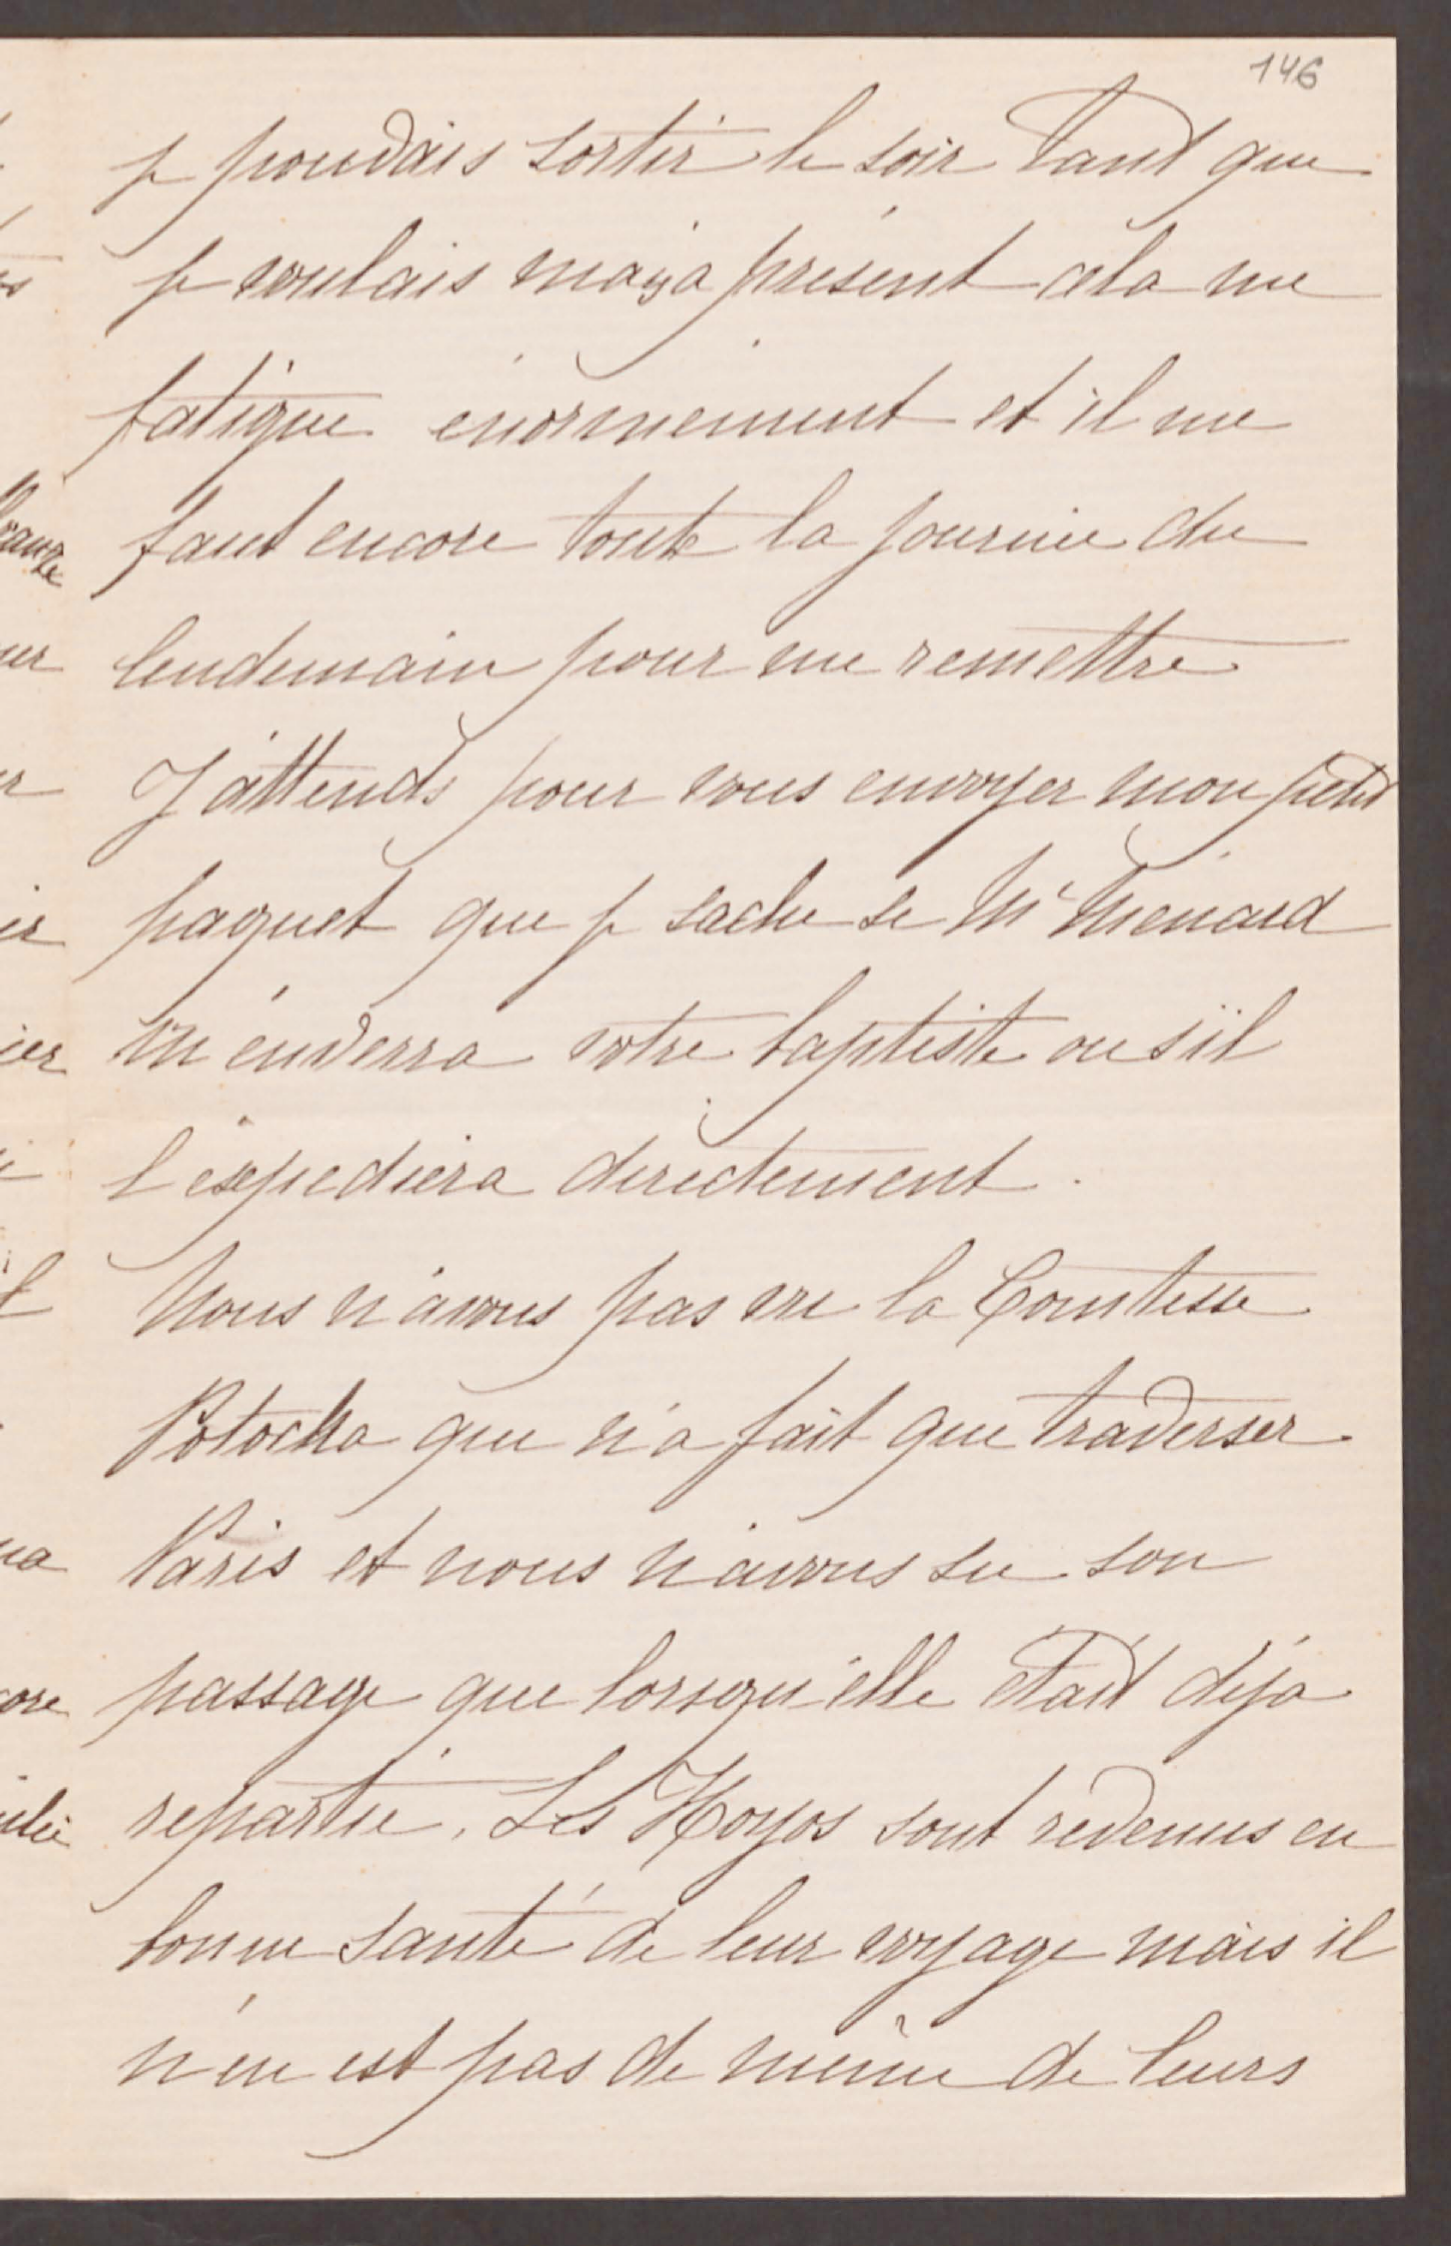 146
je pouvais sortir le soir tant que
je voulais mais à présent cela me
fatigue énormément et il me
faut encore toute la journée du
lendemain pour me remettre
J'attends pour vous envoyer mon petit
paquet que je sache si Mr Menard
m'enverra votre baptiste ou s'il
l'expediera directement.
Nous n'avons pas vu la Comtesse
Potocka qui n'a fait que traverser
Paris et nous n'avons su son
passage que lorsqu'elle était déjà
repartie. Les Hoyos sont revenus en
bonne santé de leur voyage mais il
n'en est pas de même de leurs